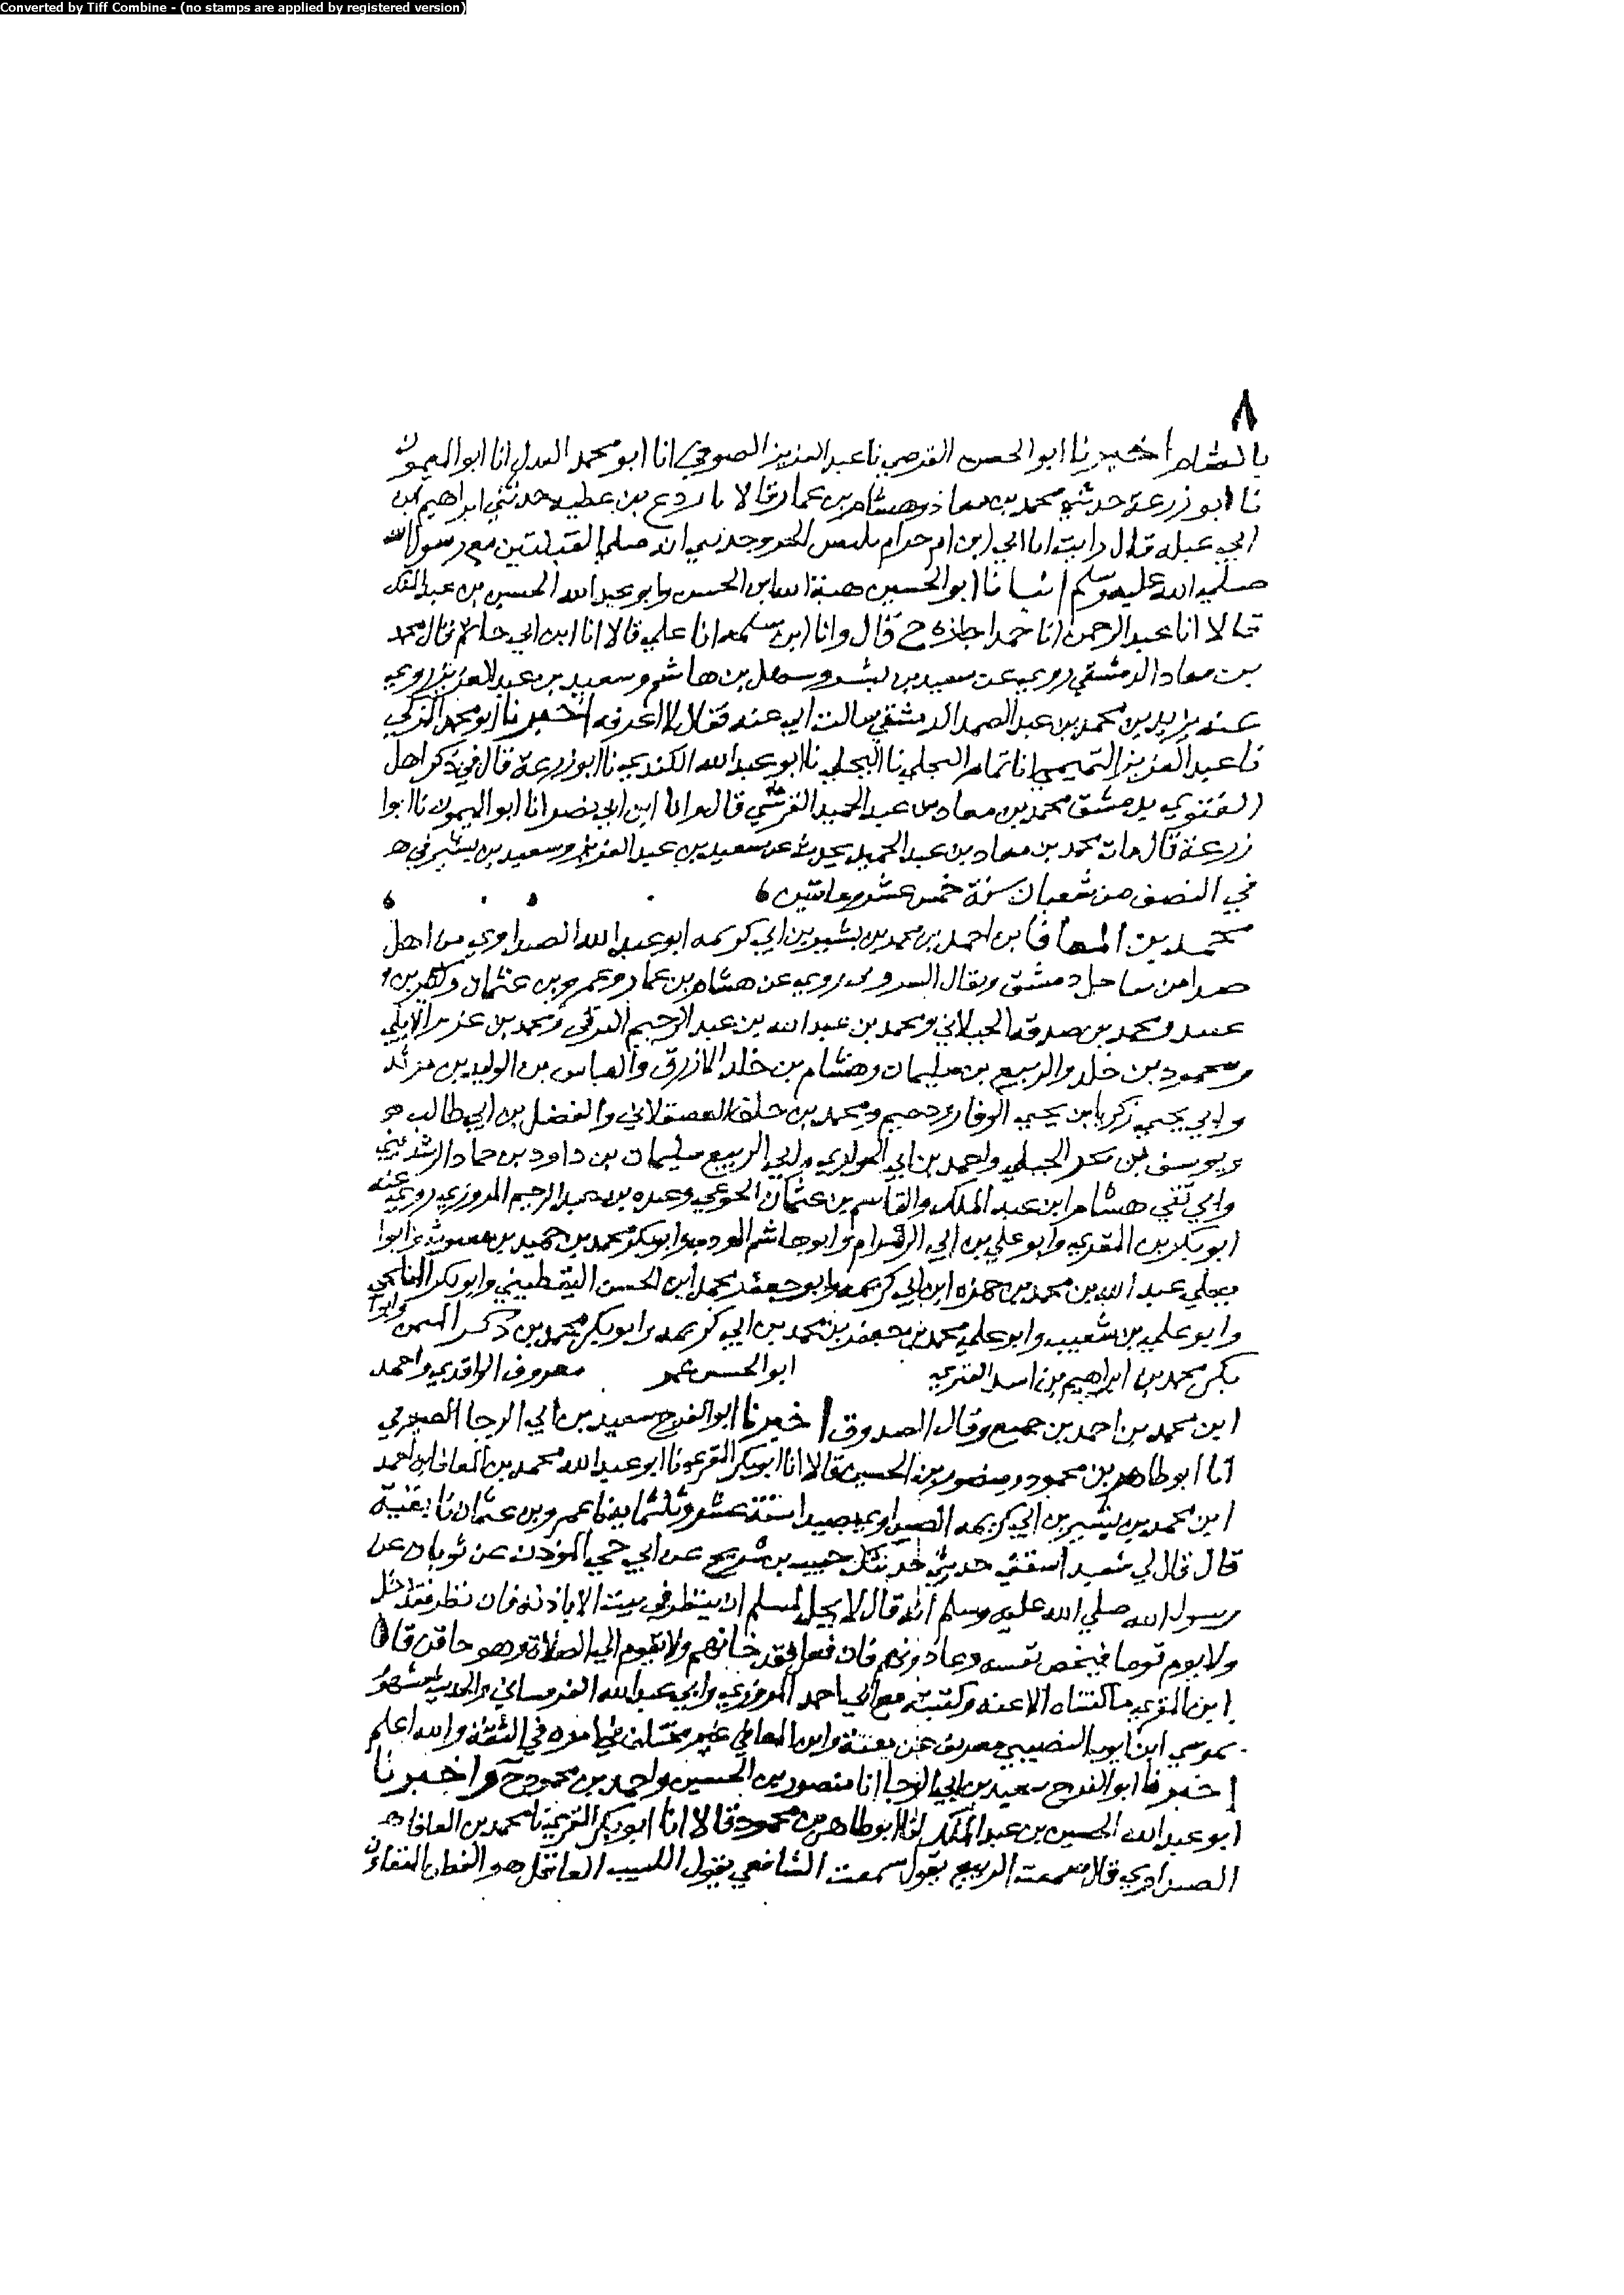 Converted by Tiff Combine - (no stamps are applied by registered version)
٨
بالشام اخبرنا ابو الحسن الفرضي نا عبد العزيز الصوفي انا ابو محمد العدل انا ابو الميمون
نا ابو زرعة حدثني محمد بن معاذ وهشام بن عمار قالا نا ردع بن عطيه حدثني ابراهيم بن
ابي عبله قال رايت ابا ابي ابن ام حرام يلبس الخز وحدثني انه صلي القبلتين مع رسول الله
صلي الله عليه وسلم انبانا ابو الحسين هبة الله ابن الحسن وابو عبد الله الحسين بن عبد الملك
قالا انا عبد الرحمن انا حمد اجازه ح قال وانا ابن سلمه انا علي قالا انا ابن ابي حاتم قال محمد
بن معاد الدمشقي روي عن سعيد بن بشر وسهل بن هاشم وسعيد بن عبد العزيز روي
عنه يزيد بن محمد بن عبد الصمد الدمشقي سالت ابي عنه فقال لا اعرفه اخبرنا ابو محمد المزكي
نا عبد العزيز التميمي انا تمام البجلي نا البجلي نا ابو عبد الله الكندي نا ابو زرعة قال في ذكر اهل
الفتوي بدمشق محمد بن معاد بن عبد الحميد القرشي قال وانا ابن ابي نصر انا ابو الميمون نا ابوا
زرعة قال مات محمد بن معاد بن عبد الحميد يحدث عن سعيد بن عبد العزيز وسعيد بن بشير في هـ
في النصف من شعبان سنة خمس عشر وماتين
محمد بن المعافا بن احمد بن محمد بن بشير بن ابي كريمه ابو عبد الله الصيداوي من اهل
صيدا من ساحل دمشق ويقال البيروتي روي عن هشام بن عمار وعمرو بن عثمان وكثير بن
عبيد ومحمد بن صدقه الجبلاني ومحمد بن عبد الله بن عبد الرحيم البرقي ومحمد بن عزيز الايلي
ومحمود بن خلد والربيع بن سليمان وهشام بن خلد الازرق والعباس بن الوليد بن مزيد
وابي يحيي زكريا بن يحيي الوقار ودحيم ومحمد بن خلف العسقلاني والفضل بن ابي طالب هو
ويوسف بن بحر الجبلي واحمد بن ابي الحواري وابي الربيع سليمان بن داود بن حماد الرشديني
وابي تقي هشام ابن عبد الملك والقاسم بن عثمان الجوعي وعبده بن عبد الرحيم المروزي روي عنه
ابو بكر بن المقري وابو علي بن ابي الرمرام وابو هاشم المودب وابو بكر محمد بن حميد بن معيوف وابوا
يعلي عبد الله بن محمد بن حمزه ابن ابي كريمه وابو جعفر محمد ابن الحسن اليقطيني وابو بكر الميانجي
وابو علي بن شعيب وابو علي محمد بن جعفر بن محمد بن ابي كريمه وابو بكر محمد بن وابوا
بكر محمد بن ابراهيم بن اسد القنري ابو الحسن عمر معروف الواقدي واحمد
ابن محمد بن احمد بن جميع وقال الصدوق اخبرنا ابو الفرج سعيد بن ابي الرجا الصيرفي
انا ابو طاهر بن محمود ومنصور بن الحسين قالا انا ابو بكر المقري نا ابو عبد الله محمد بن المعافا ابن احمد
ابن محمد بن بشير بن ابي كريمه الصيداوي بصيدا سنة عشر وثلثماية نا عمرو بن عثمان نا بقية
قال قال لي شعبه استقني حديث حدثك حبيب بن شريح عن ابي حي المؤذن عن ثوبان عن
رسول الله صلي الله عليه وسلم انه قال لا يحل لمسلم ان ينظر في بيت الا باذنه فان نظر فقد دخل
ولا يوم قوما فيخص نفسه دعا دونهم فان فعل فقد خانهم ولا يقوم الي الصلاة وهو حاقن قال
ابن المقري ما كتبناه الا عنه وكتبته مع ابي احمد المروزي وابي عبد الله الفرساني والحديث مشهور
بموسي ابن ايوب النصيبي معروف عن بقية وابن المعافي غير في الثقة والله اعلم
اخبرنا ابو الفرج سعيد بن ابي الرجا انا منصور بن الحسين واحمد بن محمود ح واخبرنا
ابو عبد الله الحسين بن عبد الملك انا ابو طاهر بن محمود قالا انا ابو بكر المقري نا محمد بن المعافا هـ
الصيداوي قال سمعت الربيع يقول سمعت الشافعي يقول اللبيب العاقل هو الفطن المتغافل